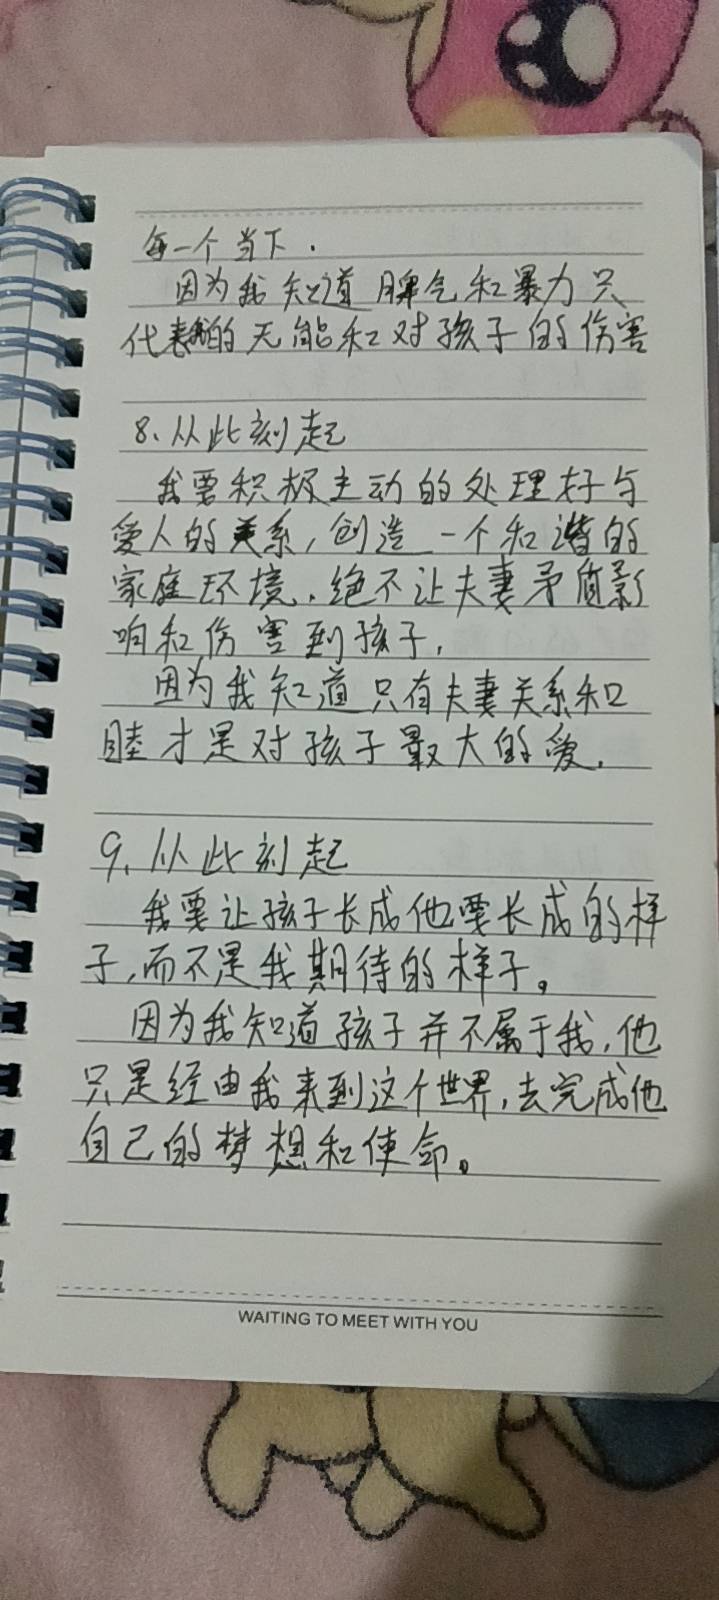 每一个当下.
因为我知道脾气和暴力只
代表我的无能和对孩子的伤害
8、从此刻起
我要积极主动的处理好与
爱人的关系,创造一个和谐的
家庭环境.绝不让夫妻矛盾影
响和伤害到孩子,
因为我知道只有夫妻关系和
睦才是对孩子最大的爱.
9、从此刻起
我要让孩子长成他要长成的样
子,而不是我期待的样子。
因为我知道孩子并不属于我,他
只是经由我来到这个世界,去完成他
自己的梦想和使命。
WAITING TO MEET WITH YOU